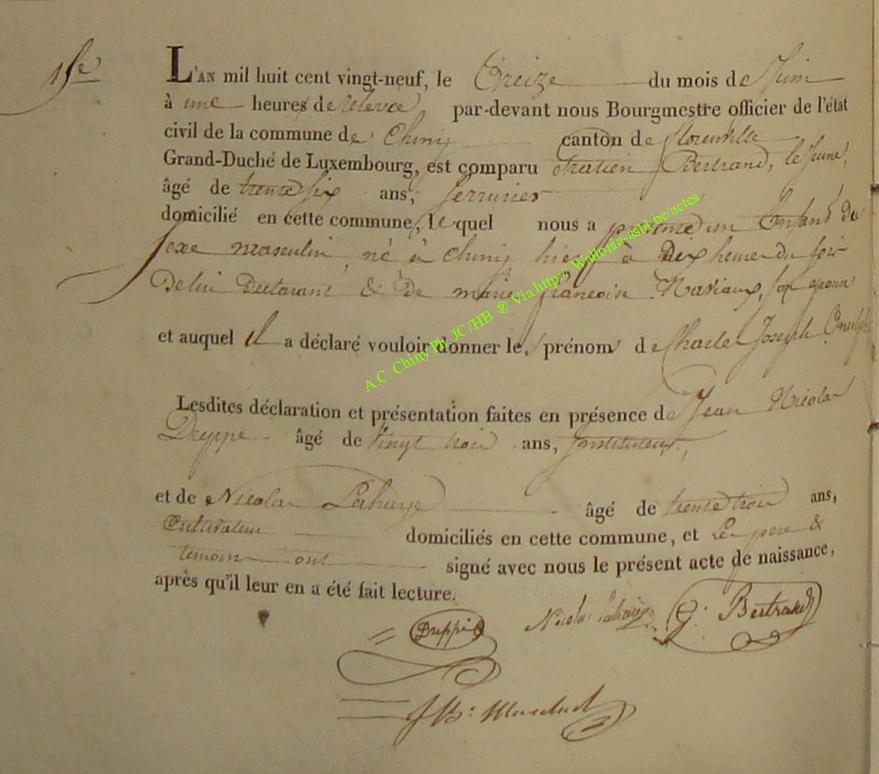 L'AN mil huit cent vingt-neuf, le Treize du mois de Juin
à une heures de relevée, par-devant nous Bourgmestre officier de l'état
civil de la commune de Chiny canton de florenville
Grand-Duché de Luxembourg, est comparu Bertrand, le Jeune,
âgé de trente six ans, serrurier
domicilié en cette commune, lequel nous a présenté un Enfant du
sexe masculin, né à Chiny hier à Dix heures du soir
De lui Déclarant & de marie françoise son épouse
et auquel il a déclaré vouloir donner les prénoms de Charles Joseph
Lesdites déclaration et présentation faites en présence de Jean Nicolas
Dreppe âgé de vingt trois ans, Instituteur,
et de Nicolas Lahaye âgé de trente trois ans,
Cultivateur domiciliés en cette commune, et les père &
témoins ont signé avec nous le présent acte de naissance,
après qu'il leur en a été fait lecture.
Dreppe Nicolas Lahaye Bertrand
A.C. Chiny Ph. JC/HB @ Via http:// Wallonia-asbl.be/actes